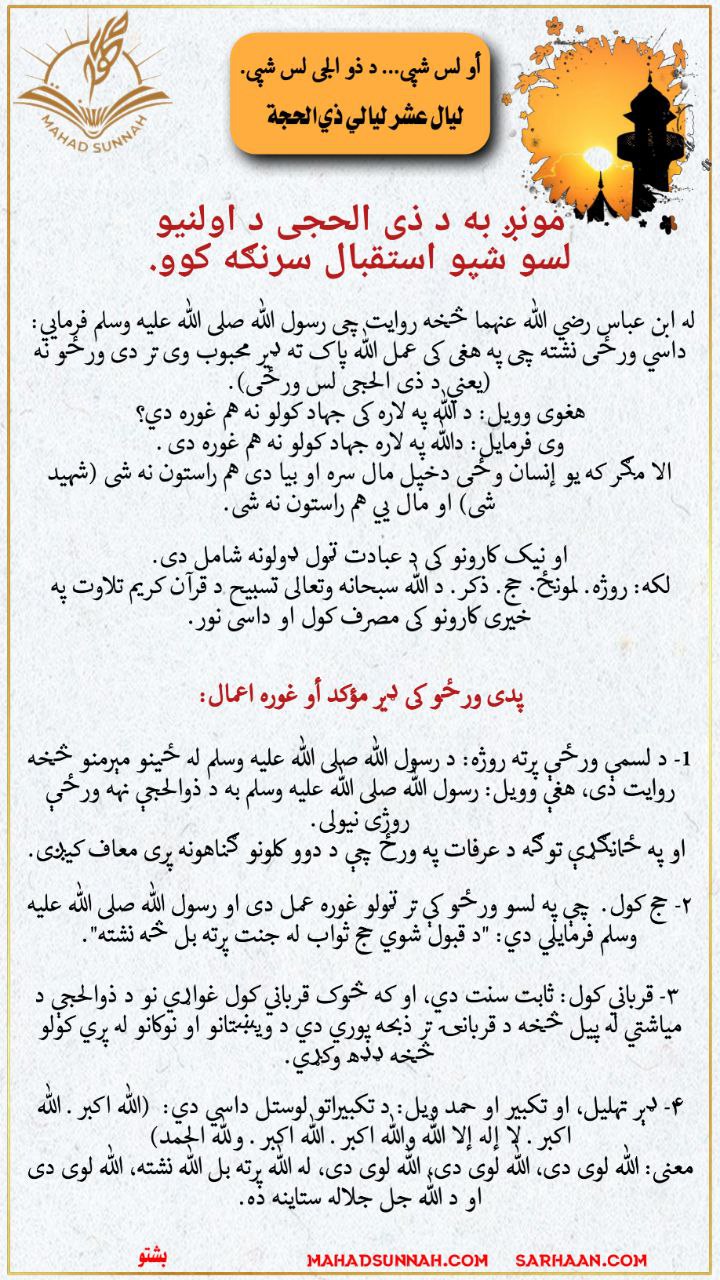 MAHAD SUNNAH
أو لس شپې... د ذو الحجى لس شپې.
ليال عشر ليالي ذي الحجة
مونږ به د ذی الحجی د اولنیو
لسو شپو استقبال سرنګه کوو.
له ابن عباس رضي الله عنهما څخه روایت چی رسول الله صلی الله علیه وسلم فرمایي:
داسي ورځی نشته چی په هغی کی عمل الله پاک ته ډېر محبوب وی تر دی ورځو نه
(یعني د ذی الحجی لس ورځی).
هغوی وویل: د الله په لاره کی جهاد کولو نه هم غوره دي؟
وی فرمایل: دالله په لاره جهاد کولو نه هم غوره دی .
الا مګر که یو إنسان وځی دخپل مال سره او بیا دی هم راستون نه شی (شهید
شی) او مال یي هم راستون نه شی.
او نیک کارونو کی د عبادت ټول ډولونه شامل دی.
لکه: روژه. لمونځ. حج. ذکر. د الله سبحانه وتعالی تسبیح د قرآن کریم تلاوت په
خیری کارونو کی مصرف کول او داسی نور.
پدی ورځو کی ډېر مؤکد أو غوره اعمال:
1- د لسمې ورځې پرته روژه: د رسول الله صلی الله علیه وسلم له ځینو مېرمنو څخه
روایت دی، هغې وویل: رسول الله صلی الله علیه وسلم به د ذوالحجې نهه ورځې
روژې نیولی.
او په ځانګړې توګه د عرفات په ورځ چې د دوو کلونو ګناهونه پرې معاف کیږي.
۲- حج کول. چې په لسو ورځو کې تر ټولو غوره عمل دی او رسول الله صلی الله علیه
وسلم فرمایلي دي: "د قبول شوي حج ثواب له جنت پرته بل څه نشته".
۳- قرباني کول: ثابت سنت دي، او که څوک قرباني کول غواړي نو د ذوالحجې د
میاشتي له پیل څخه د قربانۍ تر ذبحه پوري دي د وېښتانو او نوکانو له پرې کولو
څخه ډډه وکړي.
۴- ډېر تهلیل، او تکبیر او حمد ویل: د تکبیراتو لوستل داسې دي: (الله اکبر . الله
اکبر . لا إله إلا الله والله اکبر . الله اکبر . ولله الحمد)
معنی: الله لوی دی، الله لوی دی، الله لوی دی، له الله پرته بل الله نشته، الله لوی دی
او د الله جل جلاله ستاینه ده.
پشتو MAHADSUNNAH.COM SARHAAN.COM